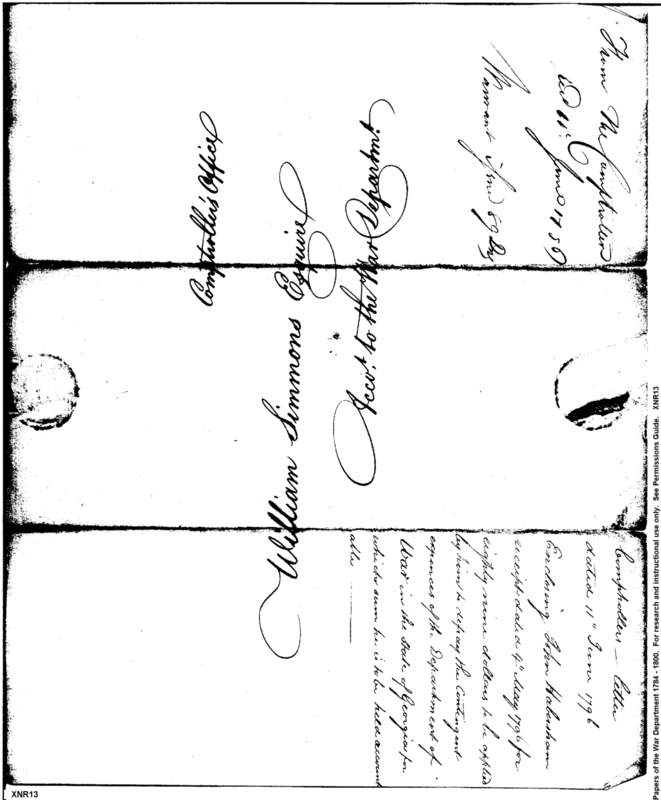 From the Comptroller
William Simmons Esquire
Acco.t to the War Departm.t
Comptroller's Office
Comptrollers letter
dated 11" June 1796
Enclosing John Habersham
receipt dated 4" May 1796 for
eighty nine dollars to be applied
by him to defray the Contingent
expences of the Department of
War in the State of Georgia for
which sum he is to be held account
able
Papers of the War Department 1784 - 1800. For research and instructional use only. See Permissions Guide. XNR13
XNR13